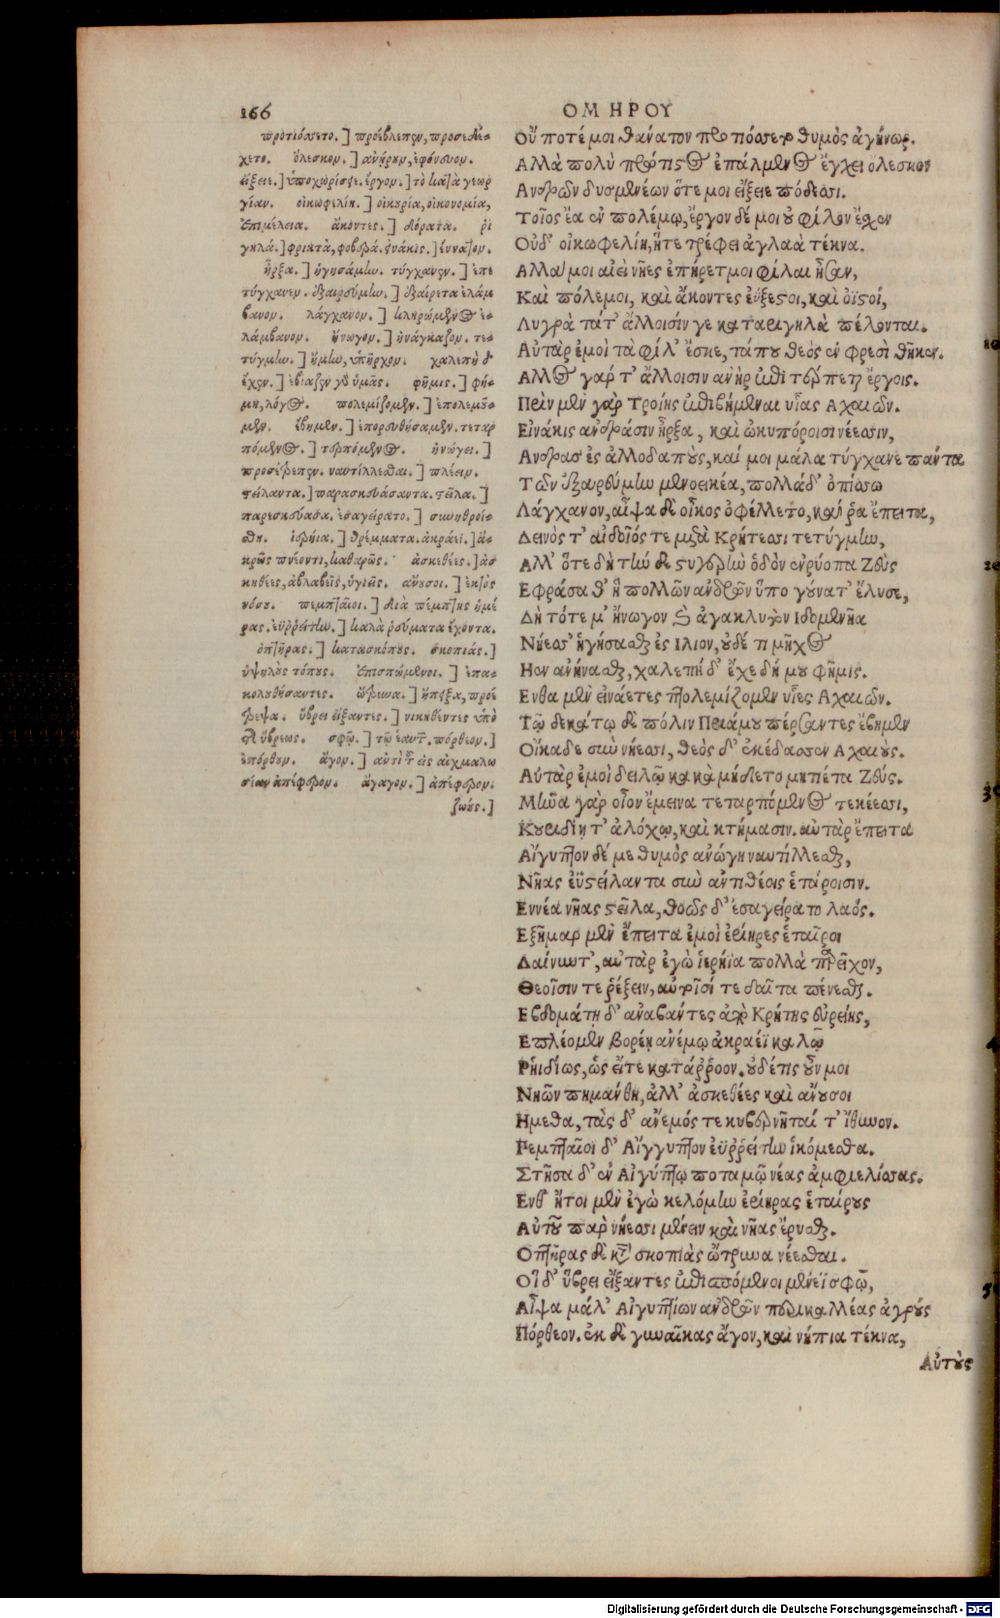 166
ΟΜΗΡΟΥ
προτιόσσετο.] προέβλεπεν, προσεδέ-
χετο. ὄλεσκον.] ἀνῄρουν, ἐφόνευον.
εἴξειε.] ὑποχωρήσειε. ἔργον.] τὸ κατὰ γεωρ
γίαν. οἰκωφελίη.] οἰκουρία, οἰκονομία,
ἐπιμέλεια. ἄκοντες.] δόρατα. ῥι
γηλά.] φρικτὰ, φοβερά. εἰνάκις.] ἐννάκις.
ἦρξα.] ἡγησάμην. τύγχανεν.] ἐπε
τύγχανεν. ἐξαιρεύμην.] ἐξαίρετα ἐλάμ
βανον. λάγχανον.] κληρώμενος ἐ-
λάμβανον. ἤνωγον.] ἠνάγκαζον. τε-
τύγμην.] ἤμην, ὑπῆρχον. χαλεπὴ δ'
ἔχεν.] ἐβίαζεν γὸ ὑμᾶς. φῆμις.] φή-
μη, λόγος. πολεμίζομεν.] ἐπολεμοῦ-
μεν. ἔβημεν.] ἐπορεύθησαμεν. τεταρ
πόμενος.] τερπόμενος. ἠνώγει.]
προσέτρεπεν. ναυτίλλεσθαι.] πλέειν.
στείλαντα.] παρασκευάσαντα. στεῖλα.]
παρεσκεύασα. ἐσαγείρατο.] συνηθροί-
σθη. ἱερήια.] θρέμματα. ἀκραέϊ.] ἄ-
κρως πνέοντι, καθαρῶς. ἀσκεθέες.] ἀσ
κηθέες, ἀβλαβεῖς, ὑγιεῖς. ἄνουσοι.] ἐκτὸς
νόσου. πεμπταῖοι.] διὰ πέμπτης ἡμέ
ρας. ἐϋῤῥείτην.] καλὰ ῥεύματα ἔχοντα.
ὀπτῆρας.] κατασκόπους. σκοπιάς.]
ὑψηλοὺς τόπους. ἐπισπόμενοι.] ἐπα-
κολουθήσαντες. ὤτρυνα.] ἤπειξα, προέ
τρεψα. ὕβρει εἴξαντες.] νικηθέντες ὑπὸ
τῆς ὕβρεως. σφῷ.] τῷ ἑαυτῶν. πόρθεον.]
ἐπόρθουν. ἄγον.] ἀντὶ τοῦ εἰς αἰχμαλω
σίαν ἀπέφερον. ἄγαγον.] ἀπέφερον.
ζωούς.]
Οὔ ποτέ μοι θάνατον προτιόσσετο θυμὸς ἀγήνωρ.
Αλλὰ πολὺ πρώτιστος ἐπάλμενος ἔγχει ὄλεσκον
Ανδρῶν δυσμενέων ὅτε μοι εἴξειε πόδεσσι.
Τοῖος ἔα ἐν πολέμῳ, ἔργον δέ μοι οὐ φίλον ἔσκεν
Οὐδ' οἰκωφελίη, ἥτε τρέφει ἀγλαὰ τέκνα.
Αλλά μοι αἰεὶ νῆες ἐπήρετμοι φίλαι ἦσαν,
Καὶ πόλεμοι, καὶ ἄκοντες ἐΰξεστοι, καὶ ὀϊστοί,
Λυγρὰ τάτ' ἄλλοισίν γε καταριγηλὰ πέλονται.
Αὐτὰρ ἐμοὶ τὰ φίλ' ἔσκε, τάπου θεὸς ἐν φρεσὶ θῆκεν.
Αλλος γάρ τ' ἄλλοισιν ἀνὴρ ἐπιτέρπεται ἔργοις.
Πρὶν μὲν γὰρ Τροίης ἐπιβήμεναι υἷας Αχαιῶν.
Εἰνάκις ἀνδράσιν ἦρξα, καὶ ὠκυπόροισι νέεσσιν,
Ανδρας ἐς ἀλλοδαποὺς, καί μοι μάλα τύγχανε πάντα
Τῶν ἐξαιρεύμην μενοεικέα, πολλὰ δ' ὀπίσσω
Λάγχανον, αἶψα δὲ οἶκος ὀφέλλετο, καί ῥα ἔπειτα,
Δεινὸς τ' αἰδοῖός τε μετὰ Κρήτεσσι τετύγμην,
Αλλ' ὅτε δὴ τήν δε στυγερὴν ὁδὸν εὐρύοπα Ζεὺς
Εφράσαθ' ἣ πολλῶν ἀνδρῶν ὕπο γούνατ' ἔλυσε,
Δὴ τότε μ' ἤνωγον καὶ ἀγακλυτὸν Ιδομενῆα
Νήεσσ' ἡγήσασθαι ἐς Ιλιον, οὐδέ τι μῆχος
Ηεν ἀνήνασθαι, χαλεπὴ δ' ἔχε δήμου φῆμις.
Ενθα μὲν εἰνάετες πτολεμίζομεν υἷες Αχαιῶν.
Τῷ δεκάτῳ δὲ πόλιν Πριάμου πέρσαντες ἔβημεν
Οἴκαδε σὺν νήεσσι, θεὸς δ' ἐκέδασσεν Αχαιούς.
Αὐτὰρ ἐμοὶ δειλῷ κακὰ μήδετο μητίετα Ζεύς.
Μῆνα γὰρ οἶον ἔμεινα τεταρπόμενος τεκέεσσι,
Κουριδίῃ τ' ἀλόχῳ, καὶ κτήμασιν. αὐτὰρ ἔπειτα
Αἴγυπτον δέ με θυμὸς ἀνώγη ναυτίλλεσθαι,
Νῆας ἐῢ στείλαντα σὺν ἀντιθέοις ἑτάροισιν.
Εννέα νῆας στεῖλα, θοῶς δ' ἐσαγείρατο λαός.
Εξῆμαρ μὲν ἔπειτα ἐμοὶ ἐρίηρες ἑταῖροι
Δαίνυντ', αὐτὰρ ἐγὼ ἱερήϊα πολλὰ παρεῖχον,
Θεοῖσιν τε ῥέζειν, αὐτοῖσί τε δαῖτα πένεσθαι.
Εβδομάτῃ δ' ἀναβάντες ἀπὸ Κρήτης εὐρείης,
Επλέομεν βορέῃ ἀνέμῳ ἀκραέϊ καλῷ
Ρηιδίως, ὡς εἴτε κατάῤῥοον. οὐδέ τις οὖν μοι
Νηῶν πημάνθη, ἀλλ' ἀσκεθέες καὶ ἄνουσοι
Ημεθα, τὰς δ' ἄνεμός τε κυβερνῆταί τ' ἴθυνον.
Πεμπταῖοι δ' Αἴγυπτον ἐϋῤῥείτην ἱκόμεσθα.
Στῆσα δ' ἐν Αἰγύπτῳ ποταμῷ νέας ἀμφιελίσσας.
Ενθ' ἤτοι μὲν ἐγὼ κελόμην ἐρίηρας ἑταίρους
Αὐτοῦ παρ νήεσσι μένειν καὶ νῆας ἔρυσθαι.
Οπτῆρας δὲ κατὰ σκοπιὰς ὤτρυνα νέεσθαι.
Οἱ δ' ὕβρει εἴξαντες ἐπισπόμενοι μένεϊ σφῷ,
Αἶψα μάλ' Αἰγυπτίων ἀνδρῶν περικαλλέας ἀγροὺς
Πόρθεον. ἐκ δὲ γυναῖκας ἄγον, καὶ νήπια τέκνα,
Αὐτοὺς
Digitalisierung gefördert durch die Deutsche Forschungsgemeinschaft - DFG